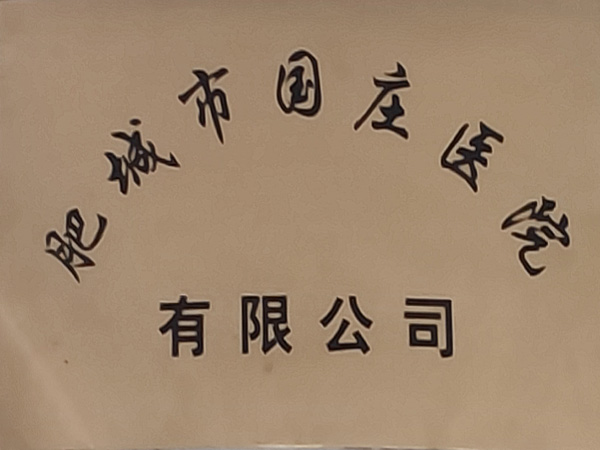 肥城市国庄医院
有限公司